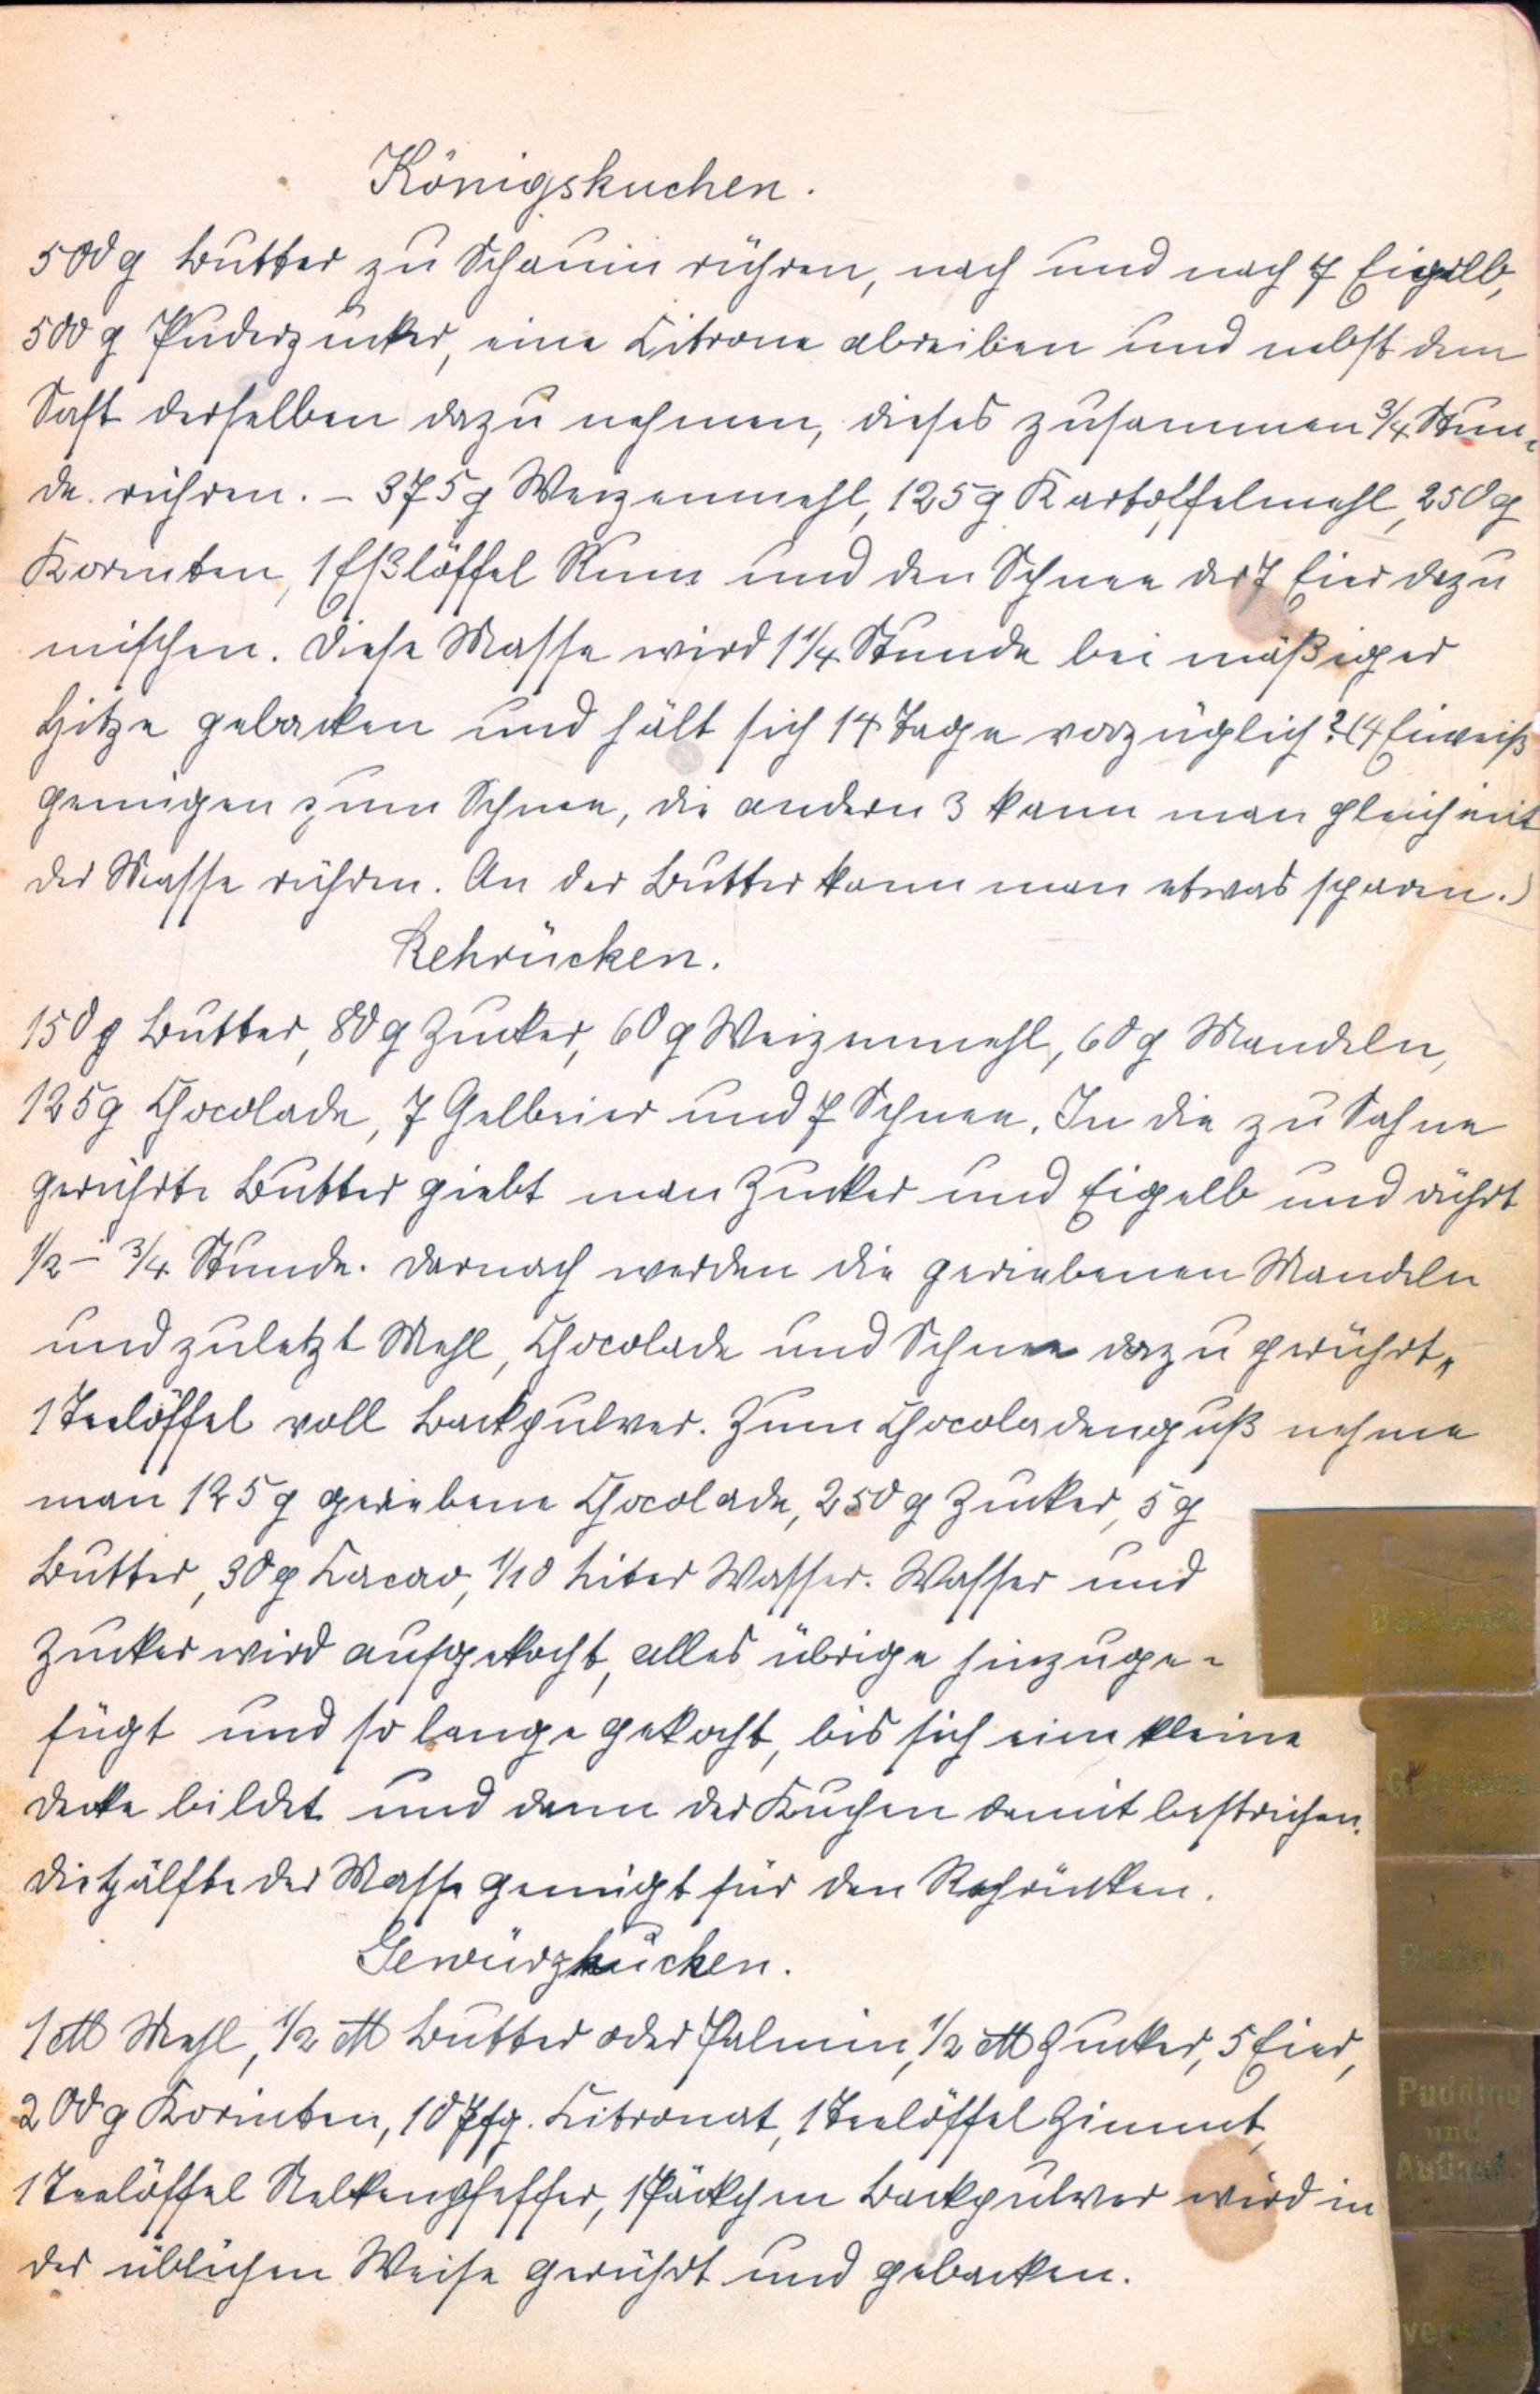 Königskuchen.
500 g Butter zu Schaum rühren, nach und nach 7 Eigelb,
500 g Puderzucker, eine Citrone abreiben und nebst dem
Saft derselben dazu nehmen, dieses zusammen 3/4 Stun-
de rühren. – 375 g Weizenmehl, 125 g Kartoffelmehl, 250 g
Korinten, 1 Eßlöffel Rum und den Schnee der 7 Eier dazu
mischen. Diese Masse wird 1 1/4 Stunde bei mäßiger
Hitze gebacken und hält sich 14 Tage vorzüglich? (4 Eiweiß
genügen zum Schnee, die andern 3 kann man gleich mit
der Masse rühren. An der Butter kann man etwas sparen.)
Rehrücken.
150 g Butter, 80 g Zucker, 60 g Weizenmehl, 60 g Mandeln,
125 g Chocolade, 7 Gelbeier und 7 Schnee. In die zu Sahne
gerührte Butter giebt man Zucker und Eigelb und rührt
1/2 – 3/4 Stunde. Darnach werden die geriebenen Mandeln
und zuletzt Mehl, Chocolade und Schnee dazu gerührt,
1 Teelöffel voll Backpulver. Zum Chocoladenguß nehme
man 125 g geriebene Chocolade, 250 g Zucker, 5 g
Butter, 30 g Cacao, 1/10 Liter Wasser. Wasser und
Zucker wird aufgekocht, alles übrige hinzuge-
fügt und so lange gekocht, bis sich eine kleine
Decke bildet und dann der Kuchen damit bestrichen.
Die Hälfte der Masse genügt für den Rehrücken.
Gewürzkuchen.
1 ℔ Mehl, 1/2 ℔ Butter oder Palmin, 1/2 ℔ Zucker, 5 Eier,
200 g Korinten, 10 Pfg. Citronat, 1 Teelöffel Zimmt,
1 Teelöffel Nelkenpfeffer, 1 Päckchen Backpulver wird in
der üblichen Weise gerührt und gebacken.
Backwerk
Getränke
Pudding
und
Auflauf